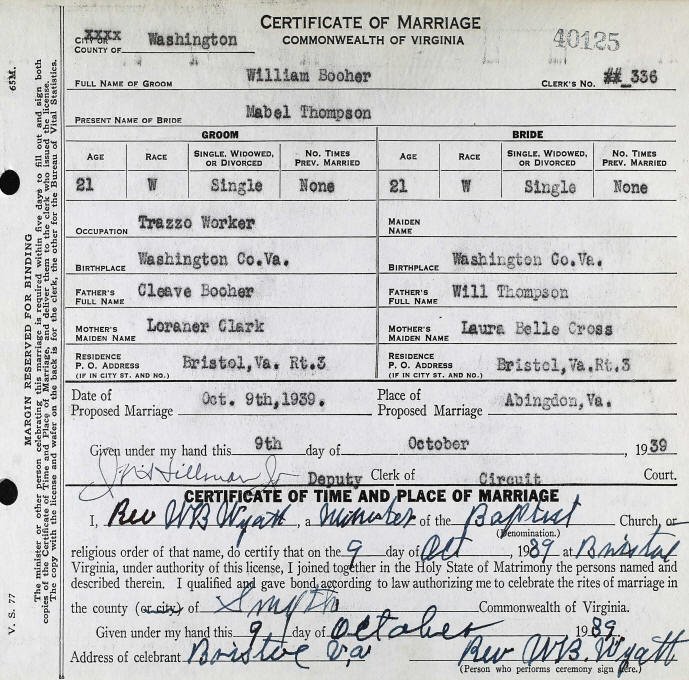 CERTIFICATE OF MARRIAGE
COMMONWEALTH OF VIRGINIA
40125
CITY OR xxxx
COUNTY OF Washington
FULL NAME OF GROOM William Booher CLERK'S NO. ##_336
PRESENT NAME OF BRIDE Mabel Thompson
GROOM BRIDE
AGE RACE SINGLE, WIDOWED, OR DIVORCED NO. TIMES PREV. MARRIED AGE RACE SINGLE, WIDOWED, OR DIVORCED NO. TIMES PREV. MARRIED
21 W Single None 21 W Single None
OCCUPATION Trazzo Worker MAIDEN NAME
BIRTHPLACE Washington Co.Va. BIRTHPLACE Washington Co.Va.
FATHER'S FULL NAME Cleave Booher FATHER'S FULL NAME Will Thompson
MOTHER'S MAIDEN NAME Loraner Clark MOTHER'S MAIDEN NAME Laura Belle Cross
RESIDENCE P. O. ADDRESS (IF IN CITY ST. AND NO.) Bristol,Va. Rt.3 RESIDENCE P. O. ADDRESS (IF IN CITY ST. AND NO.) Bristol,Va.Rt.3
Date of Proposed Marriage Oct. 9th,1939. Place of Proposed Marriage Abingdon,Va.
Given under my hand this 9th day of October, 1939
Hillman Jr Deputy Clerk of Circuit Court.
CERTIFICATE OF TIME AND PLACE OF MARRIAGE
I, Rev WB Wyatt, a Minister of the Baptist Church, or
(Denomination.)
religious order of that name, do certify that on the 9 day of Oct, 1939 at Bristol
Virginia, under authority of this license, I joined together in the Holy State of Matrimony the persons named and
described therein. I qualified and gave bond according to law authorizing me to celebrate the rites of marriage in
the county (or city) of Smyth Commonwealth of Virginia.
Given under my hand this 9 day of October 1939.
Address of celebrant Bristol Va Rev WB. Wyatt
(Person who performs ceremony sign here.)
V. S. 77 65M.
MARGIN RESERVED FOR BINDING
The minister or other person celebrating this marriage is required within five days to fill out and sign both
copies of the Certificate of Time and Place of Marriage, and deliver them to the clerk who issued the license.
The copy with the license and wafer on the back is for the clerk, the other for the Bureau of Vital Statistics.